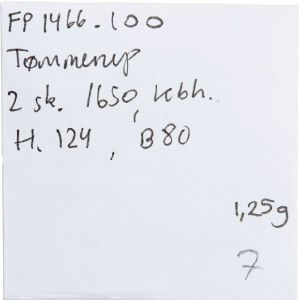 FP1466.100
Tømmerup
2 sk. 1650, Kbh.
H. 124, B 80
1,25g
7